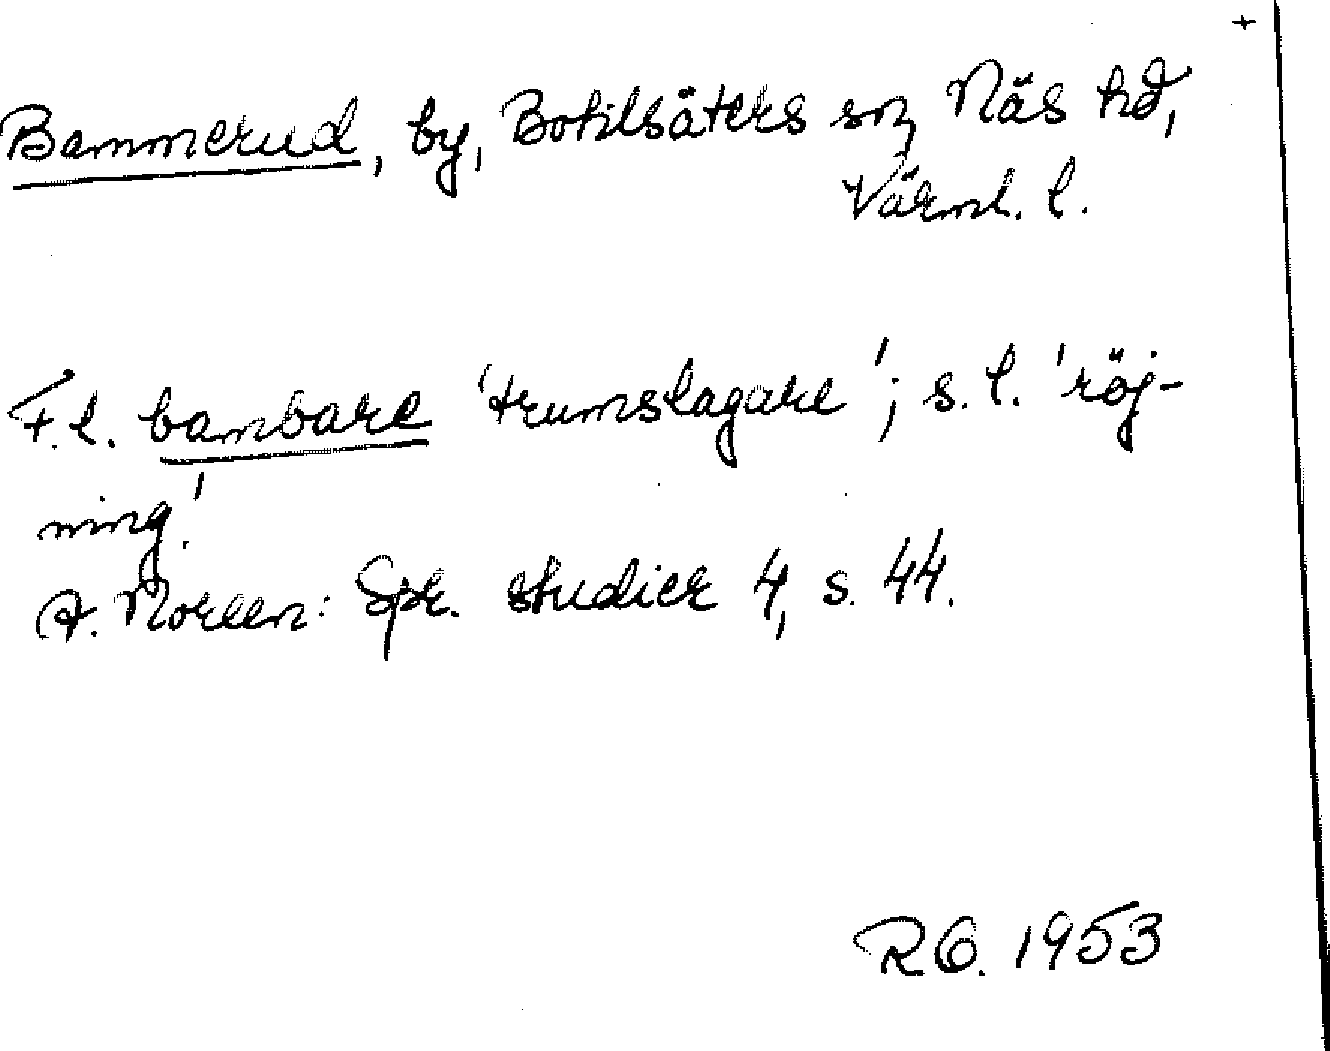 +
Bammerud, by, Botilsäters sn, Näs hd,
Värml. l.
F.l. bambare 'trumslagare'; s.l. 'röj-
ning'.
A. Noreen: Spr. studier 4, s. 44.
1953